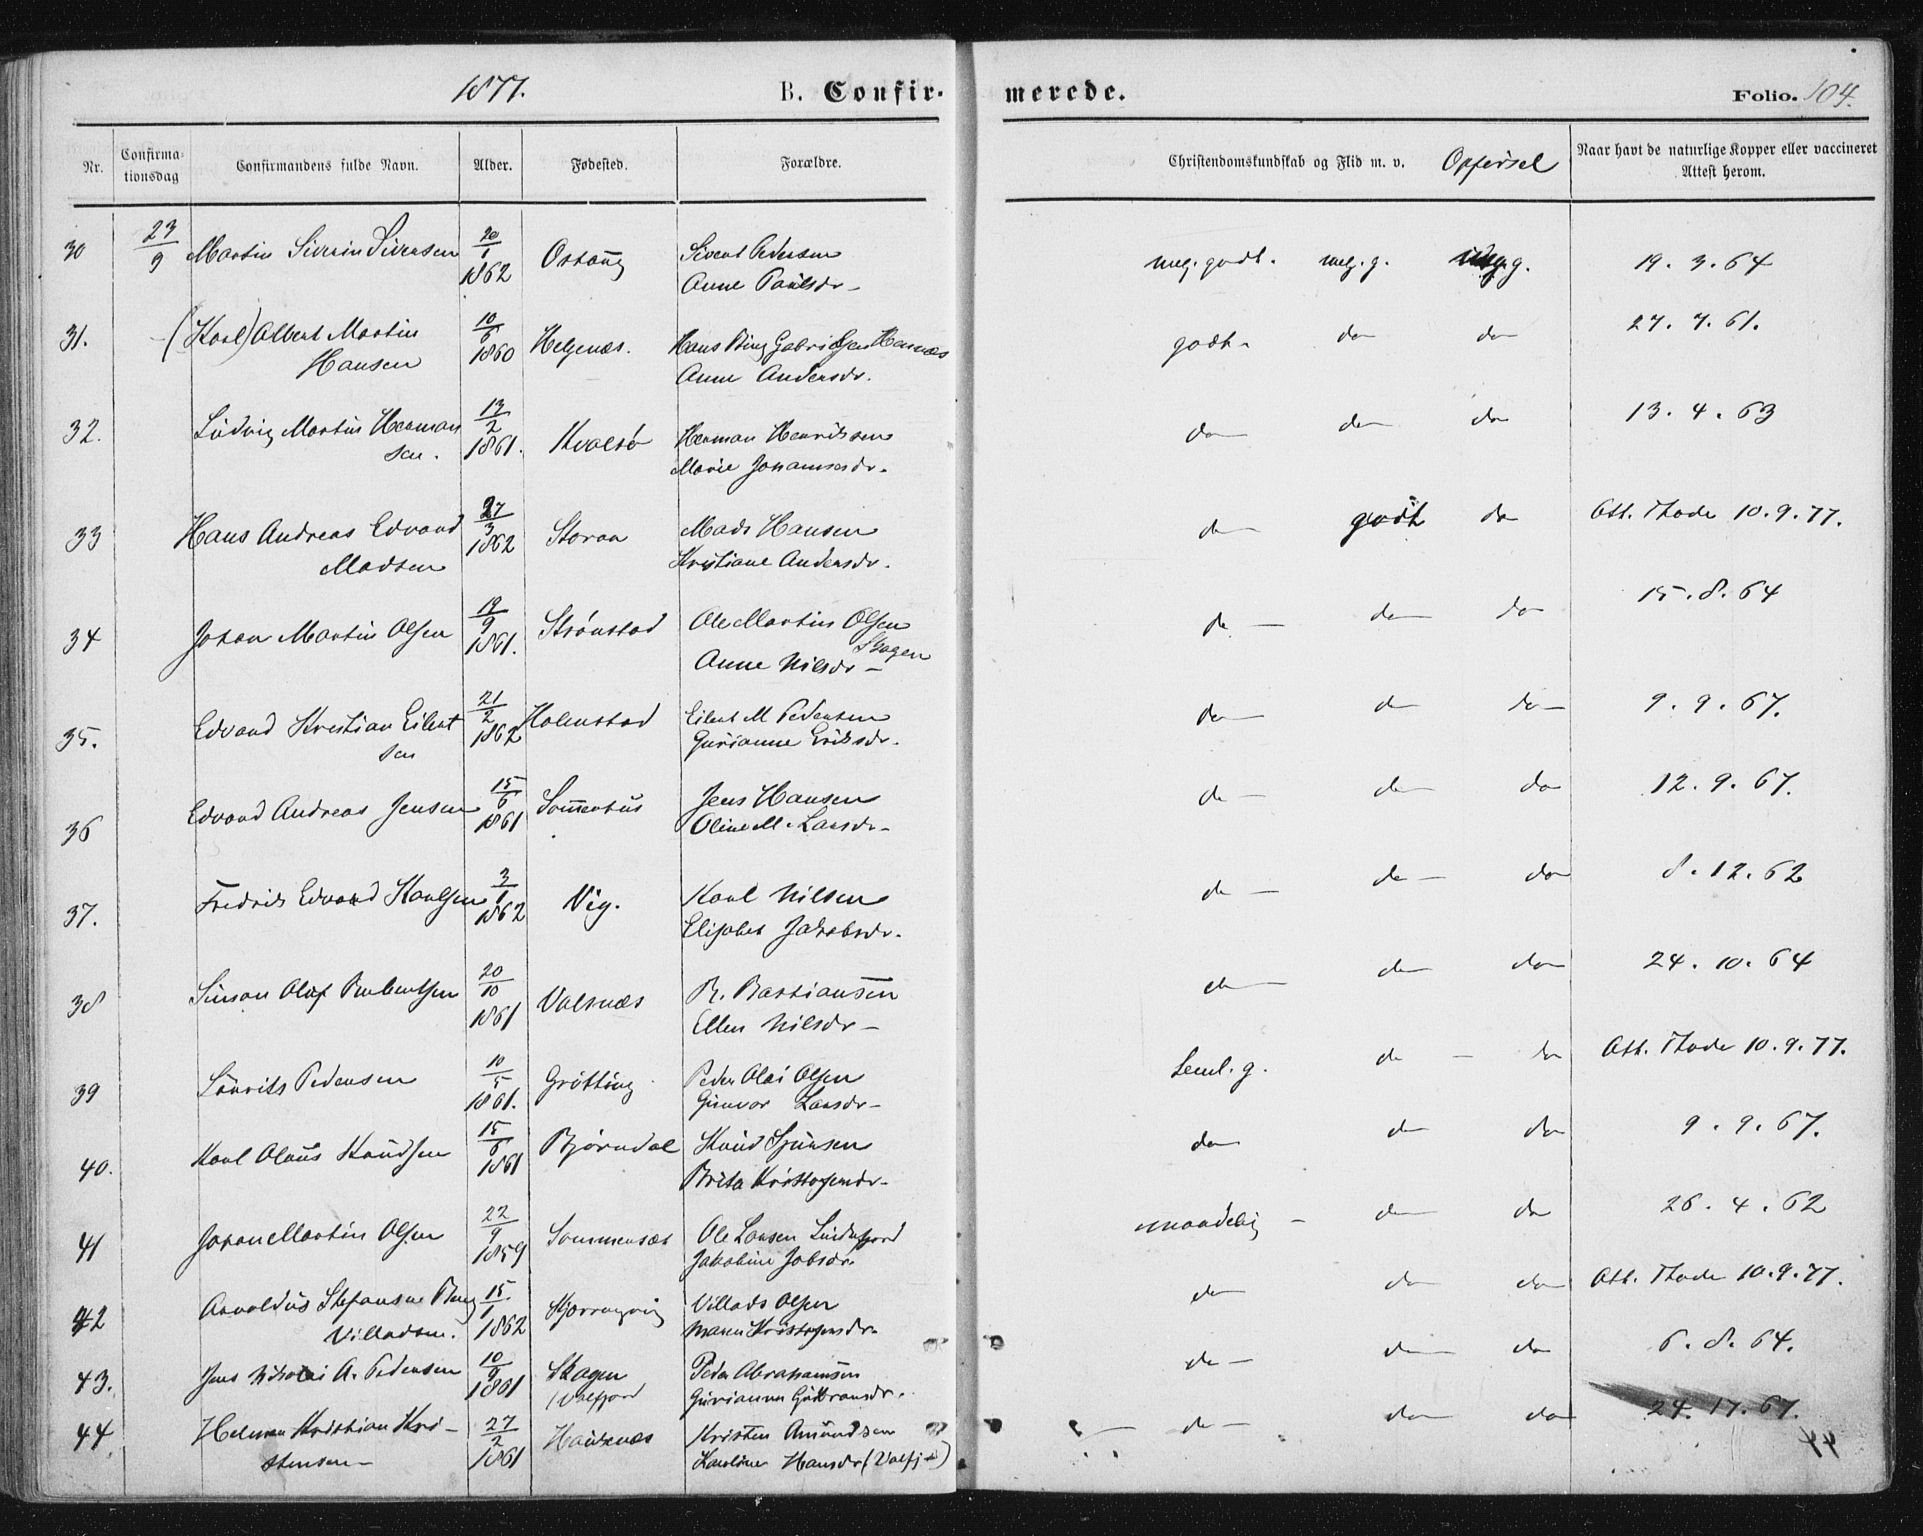 1877.
B. Confirmerede.
Folio. 104.
Nr. Confirmationsdag Confirmandens fulde Navn. Alder. Fødested. Forældre. Christendomskundskab og Flid m. v. Opførsel Naar havt de naturlige Kopper eller vaccineret Attest herom.
30 23/9 Martin Siverin Sivertsen 20/1 1862 Sivert Pedersen meg. godt. meg. g. meg. g. 19. 3. 64
Anne Paulsdr
31. (Karl) Albert Martin 10/6 1860 Helgenæs. Hans Bing Gabrielsen godt do do 27. 7. 61.
Hansen Anne Andersdr.
32. Ludvig Martin Herman 13/2 1861. Kvalsø Herman Henriksen do do do 13. 4. 63
sen. Marie Johannesdr.
33 Hans Andreas Edvard 27/3 1862 Storaa Mads Hansen do godt do Att. Thode 10. 9. 77.
Madsen Kristiane Andersdr.
34 Johan Martin Olsen 19/9 1861. Strønstad Ole Martin Olsen do do do 15. 8. 64
Skagen
Anne Nilsdr
35. Edvard Kristian Eilert 21/2 1862 Holmstad Eilert M Pedersen do do do 9. 9. 67.
sen Gurianne Eriksdr.
36 Edvard Andreas Jensen 15/6 1861 Jens Hansen do do do 12. 9. 67.
Oline M. Larsdr
37. Fredrik Edvard Karlsen 3/1 1862 Vig. Karl Nilsen do do do 8. 12. 62
Elisabet Jakobsdr.
38 Simon Olaf 20/10 1861 Valsnæs B. Bastiansen do do do 24. 10. 64
Ellen Nilsdr
39 Laurits Pedersen 10/5 1861. Grøtting Peder Olai Olsen Teml. g. do do Att. Thode 10. 9. 77.
Gunvor Larsdr
40. Karl Olaus Knudsen 15/6 1861 Bjørndal Knud do do do 9. 9. 67.
Brita Kristofersdr
41 Johan Martin Olsen 22/9 1859 Sommersæt Ole Larsen maadelig do do 26. 4. 62
Jakobine Jobsdr.
42 Arnoldus Stefansen Bing 15/1 1862 Villads Olsen do do do Att. Thode 10. 9. 77.
Villadsen. Maren Kristofersdr
43. Jens Nikolai A. Pedersen 10/9 1861 Skagen Peder Abrahamsen do do do 6. 8. 64.
Valfjord Gurianna
44 Helmer Kristian Kri- 27/2 1861 Hauknæs Kristen Amundsen do do do 24. 17. 67.
stensen Karoline Hansdr (Valfj)